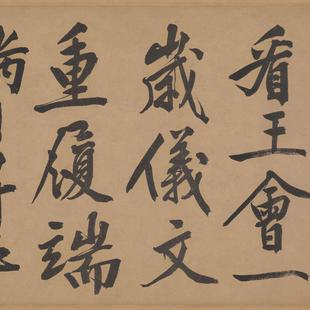 看王會一
歲儀文
重履端